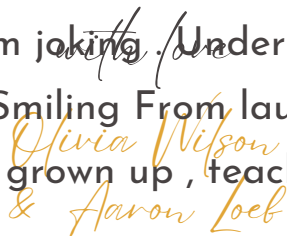 m joking . Under
with love
Smiling From lau
Olivia Wilson
grown up , teac
& Aaron Loeb